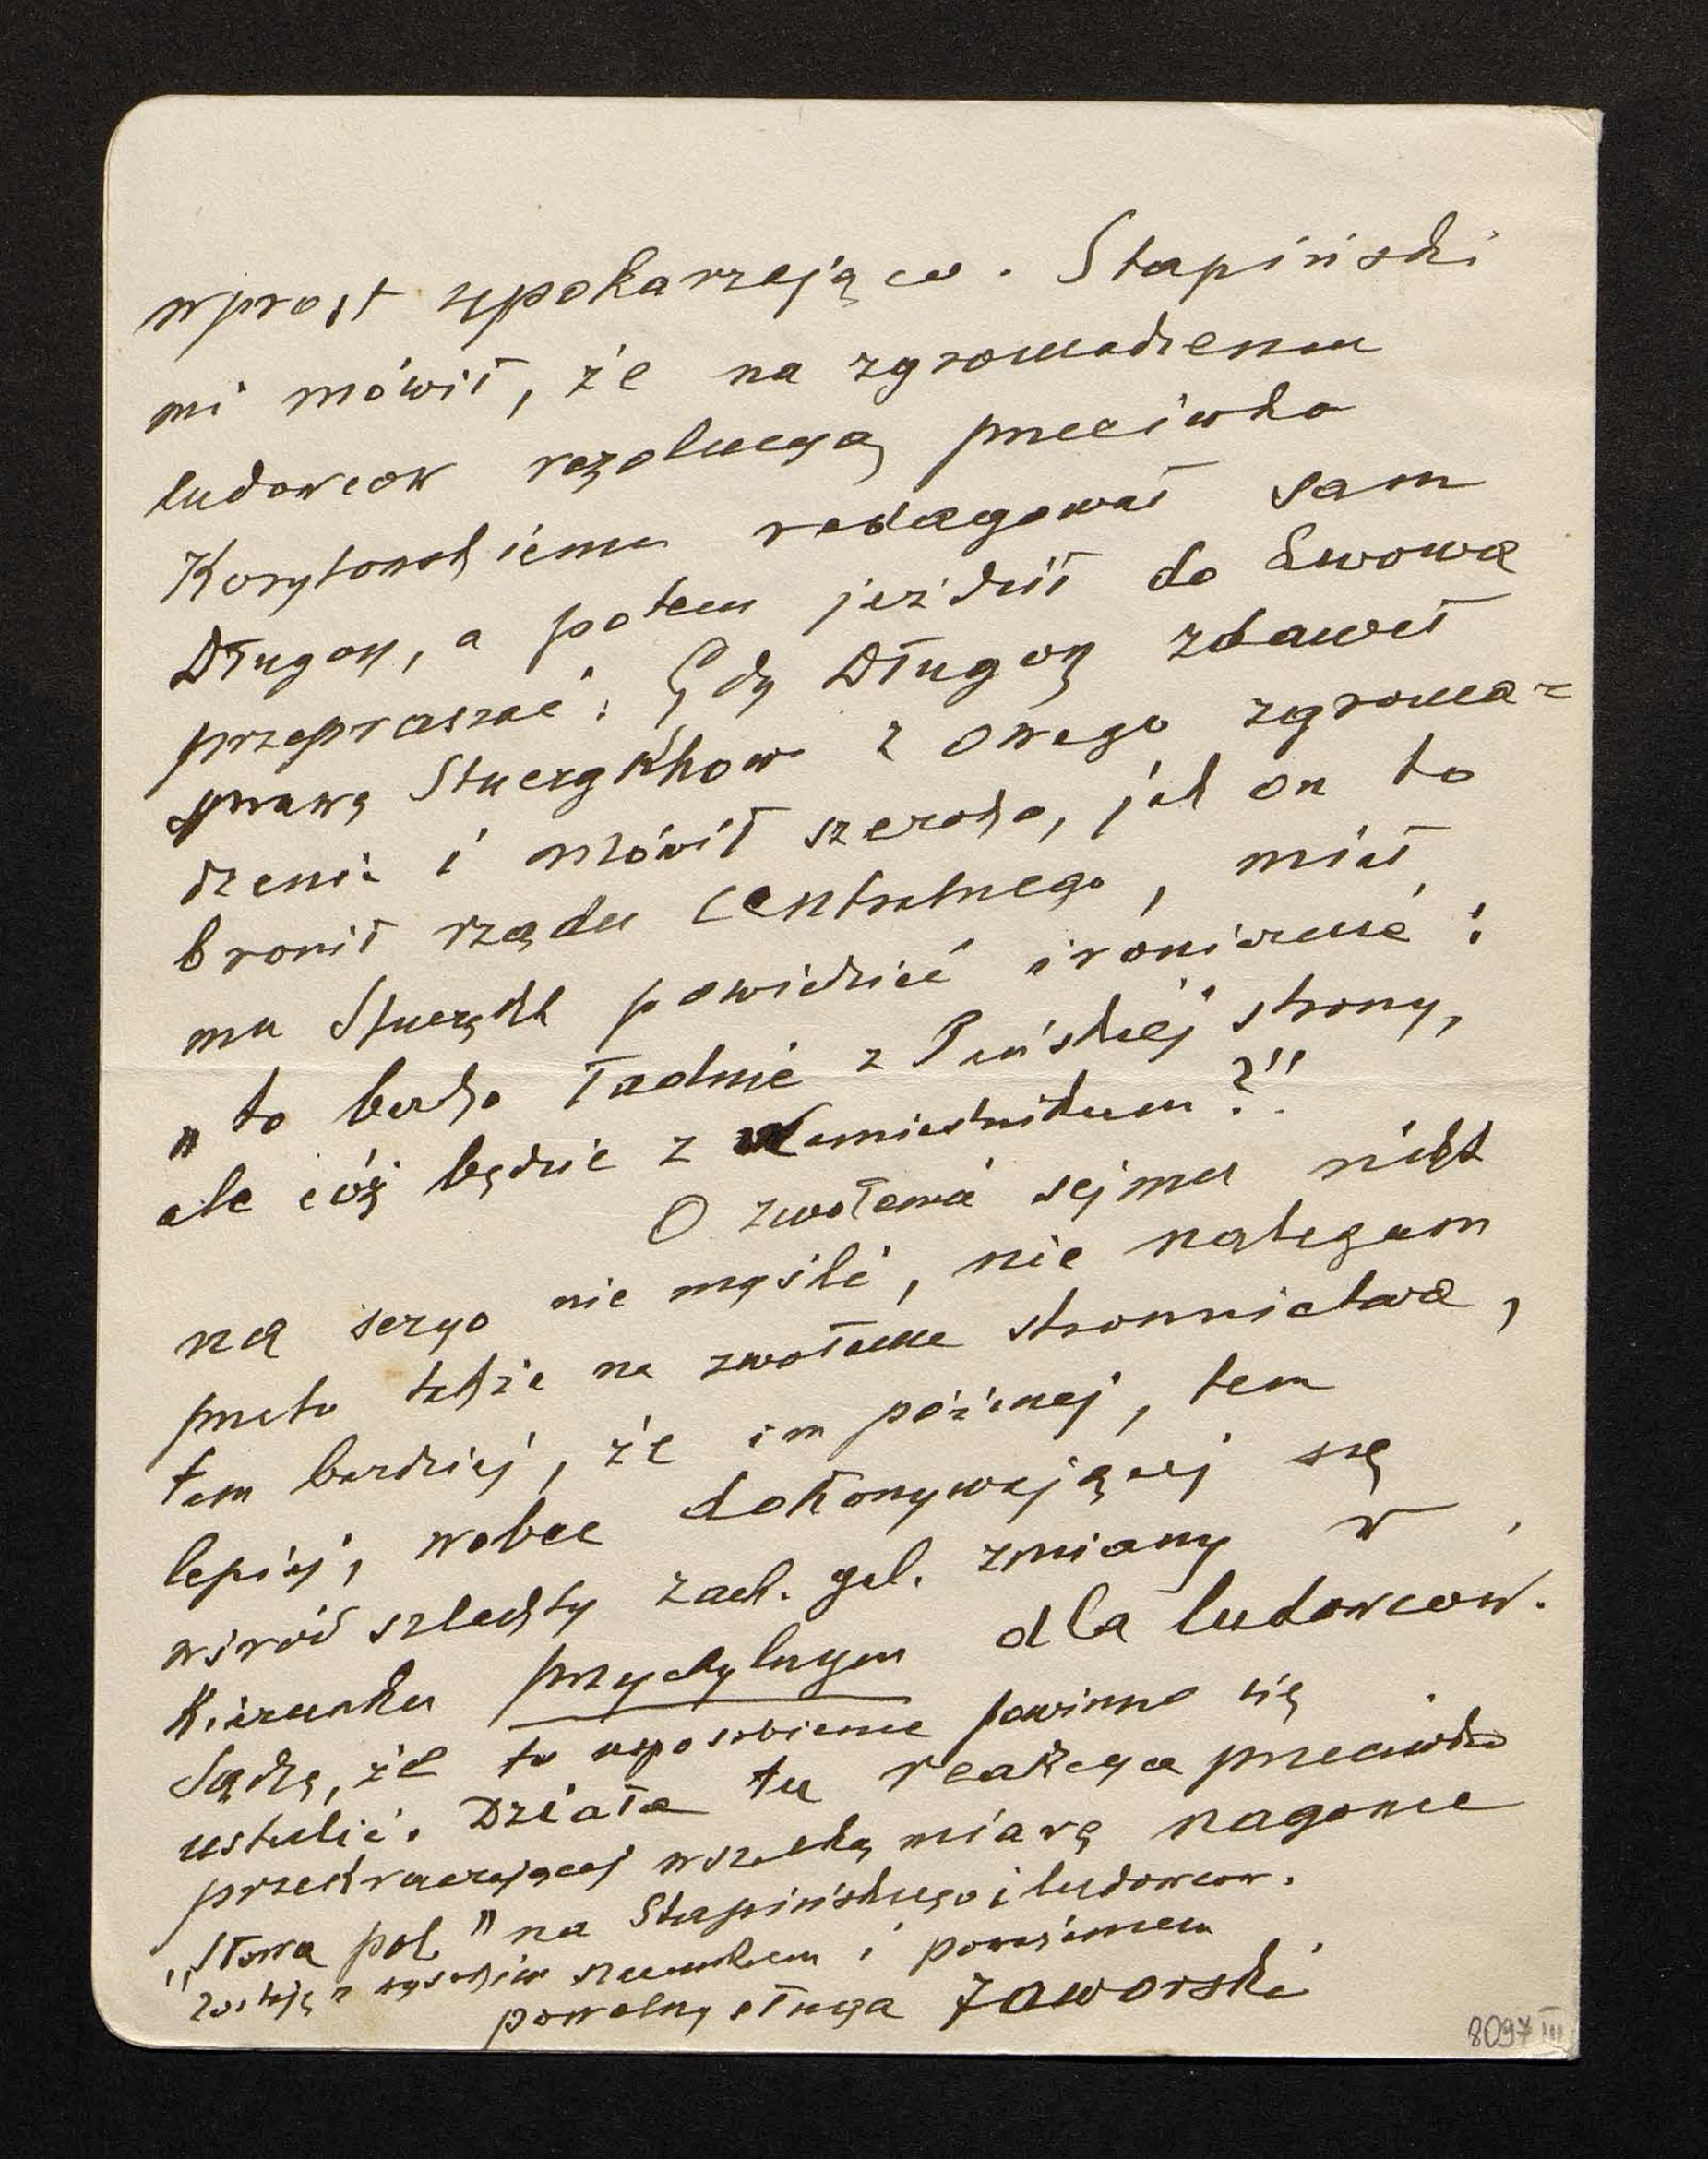 wprost upokarzająco. Stapiński
mi mówił, że na zgromadzeniu
ludowcow rezolucyą przeciwko
Korytowskiemu redagował sam
Długosz, a potem jeździł do Lwowa
przepraszać. Gdy Długosz zdawał
sprawę Stuergkhow z owego zgroma=
dzenia i mówił szeroko, jak on to
bronił rządu centralnego, miał
mu Stuergkh powiedzieć ironicznie:
"to bardzo ładnie z Pańskiej strony,
ale cóż będzie z Namiestnikum?"
O zwołaniu sejmu nikt
na seryo nie myśli, nie nalegam
przeto także na zwołanie stronnictwa,
tem bardziej, że im później, tem
lepiej, wobec dokonywającej się
wśród szlachty zach. gal. zmiany w
kierunku przychylnym dla ludowcow.
Sądzę, że to usposobienie powinno się
ustalić. Działa tu reakcya przeciwko
przekraczającej wszelką miarę nagonce
"Słowa pol." na Stapińskiego i ludowcow.
Zostaję z wysokim szacunkiem i poważaniem
powolny sługa Jaworski
8097 III